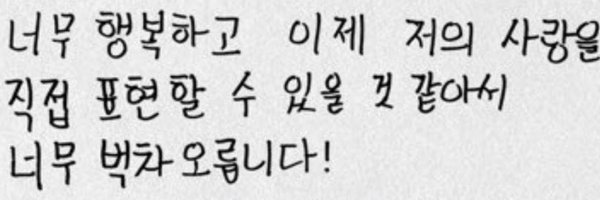 너무 행복하고 이제 저의 사랑을
직접 표현할 수 있을 것 같아서
너무 벅차오릅니다!